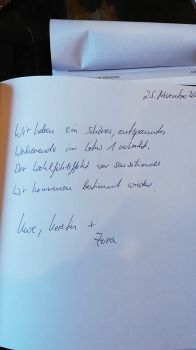 25. November 20
Wir haben ein schönes, entspanntes
Wochenende im Lotw 1 verbracht.
Der Wohlfühleffekt war sensationell
Wir kommen bestimmt wieder.
Uwe, Kerstin +
Zora